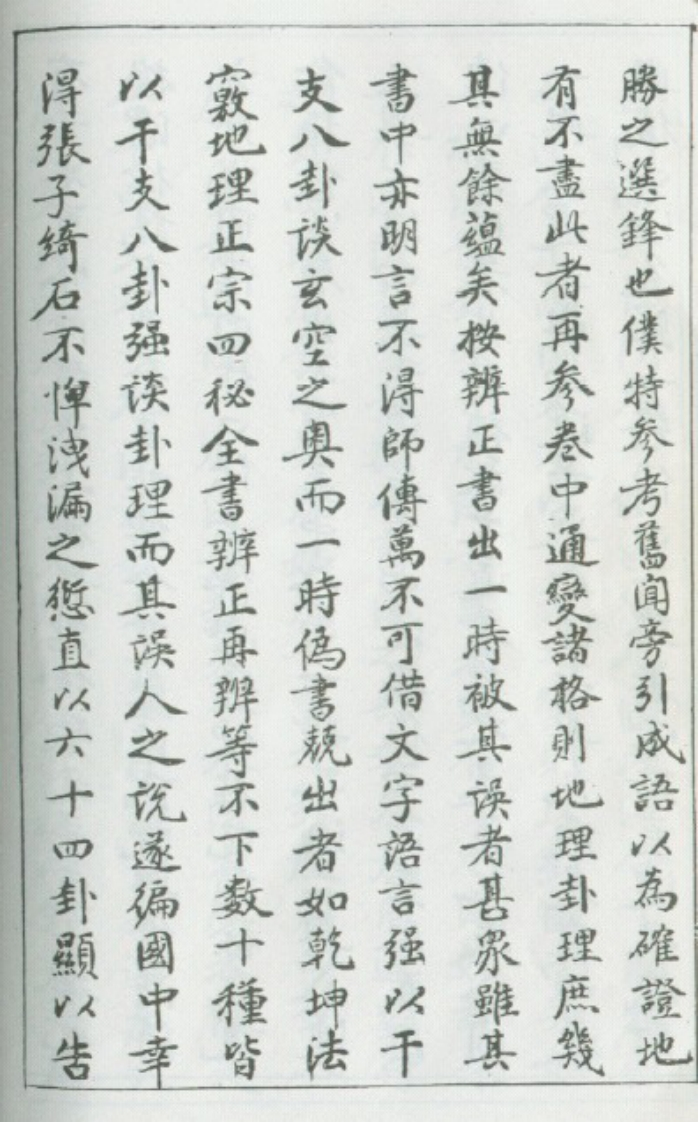 勝之選鋒也僕特參考舊闻旁引成語以為確證地
有不盡此者再参卷中通變諸格則地理卦理庶幾
其無餘蘊矣按辨正書出一時被其误者甚眾雖其
書中亦明言不淂師傳萬不可借文字語言强以干
支八卦談玄空之奥而一時偽書競出者如乾坤法
竅地理正宗四秘全書辨正再辨等不下数十種皆
以干支八卦强谈卦理而其误人之説遂徧國中幸
淂張子綺石不惮洩漏之愆直以六十四卦顯以告